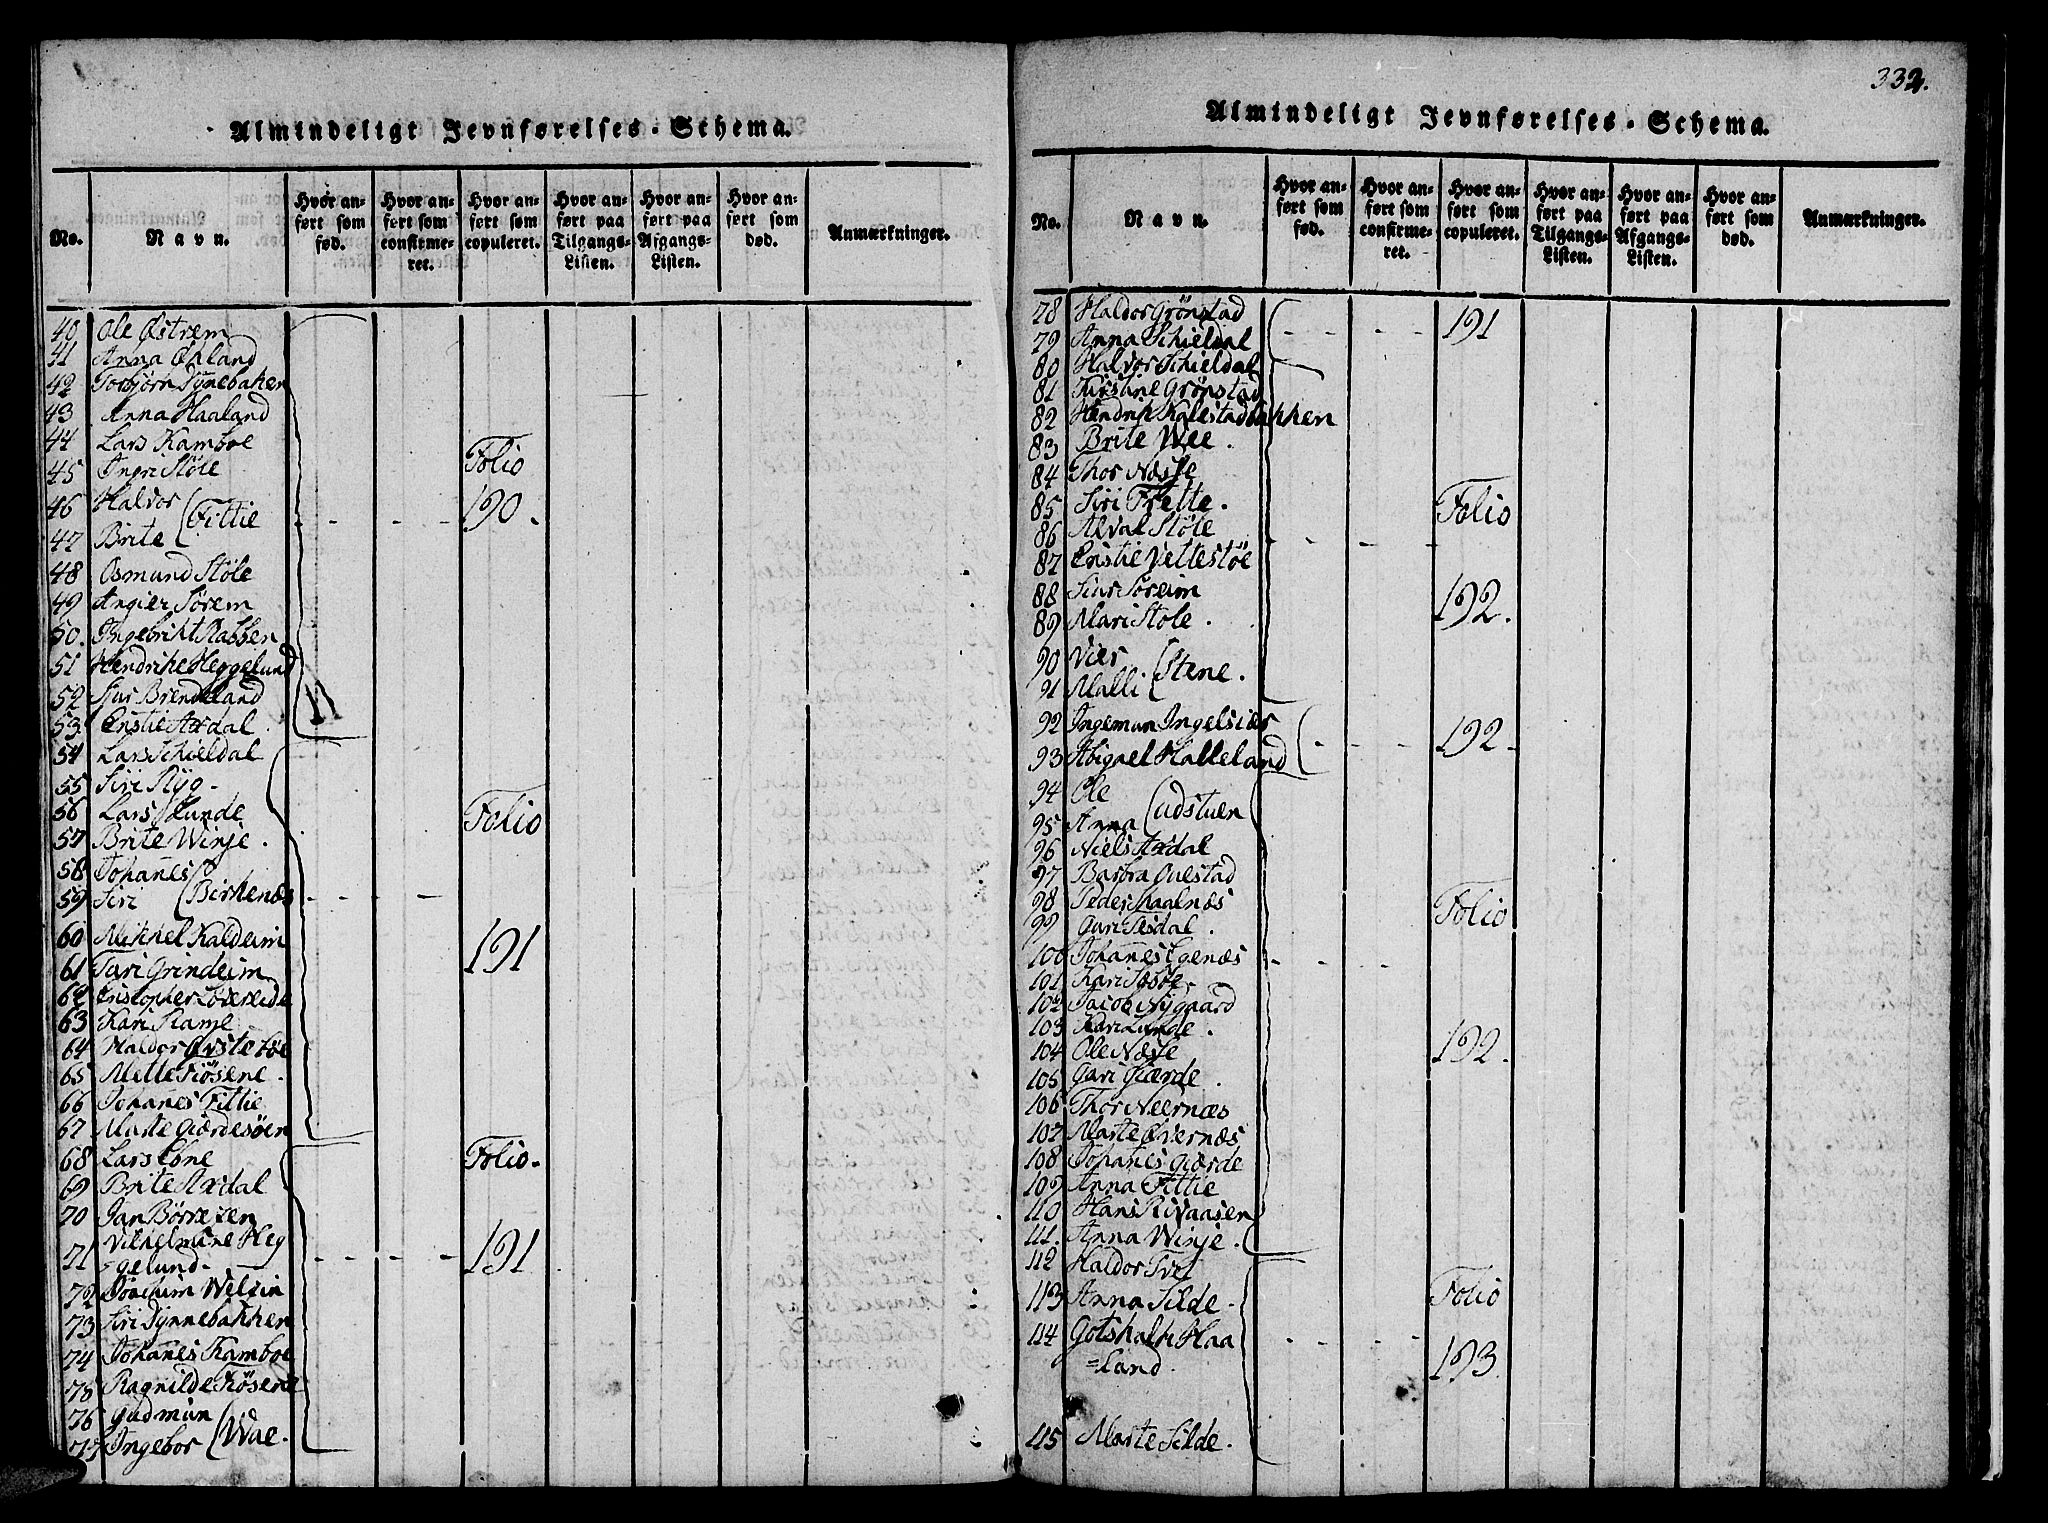 Almindeligt Jevnførelses-Schema.
No.
Navn.
Hvor anført som fød.
Hvor anført som confirmeret.
Hvor anført som copuleret.
Hvor anført paa Tilgangs-Listen.
Hvor anført paa Afgangs-Listen.
Hvor anført som død.
Anmærkninger.
40 Ole Østrem
41 Anna Øpland
42 Torbjørn Tynebaken
43 Anna Haaland
44 Lars Kamboe
45 Ingri Støle
Folio
46 Halvor
190.
47 Brite (Fittie
48 Osmund Støle
49 Angier Sørem
50. Ingebrikt Rabben
51 Hendrike Heggelund
52 Sjur Brendeland
53 Enstie Axdal.
54 Lars Schieldal
55 Siri Ryg.
56 Lars Lunde
57 Brite Winje.
Folio
58 Johanes
59 Siri (Birkenæs
60 Mikkel Kaldeim
191
61 Turi Grindeim
62 Cristopher Løvereide
63 Kari Rame
64 Haldor Øvstebøe
65 Mette Fiøsene.
66 Johanes Fittie
67 Marte Giærdesøen
68 Lars Løne
Folio.
69 Brite Axdal
70 Jan Børresen
71 Vilhelmine Heg
=gelund.
191
72 Joachim Welsin
73 Siri Tynnebakken
74 Johanes Kamboe
75 Ragnilde Fiøsene
76 Gudmun
77 Ingebor (Wae.
332.
Almindeligt Jevnførelses-Schema.
No.
Navn.
Hvor anført som fød.
Hvor anført som confirmeret.
Hvor anført som copuleret.
Hvor anført paa Tilgangs-Listen.
Hvor anført paa Afgangs-Listen.
Hvor anført som død.
Anmærkninger.
78 Haldor Grönstad
191
79 Anna Schieldal
80 Halvor Schieldal
81 Kirstine Grønstad
82 Hendrik Kallestadbakken
83 Brite Wee.
84 Thor Næsse
85 Siri Frette.
Folio
86 Alval Støle
87 Enstie Vettestøe
88 Siur Søreim
192.
89 Mari Støle.
90 Vier
91 Malli (Stene.
92 Ingemun Ingelsiær
192
93 Abigael Halleland
94 Ole
95 Anna (Udstuen
96 Niels Axdal
97 Barbra Questad
98 Peder Skaalnæs
Folio
99 Guri Tesdal.
100 Johanes Egenæs
101 Kari Sæbøe
102 Jacob Nygaard
103 Kari Lunde.
104 Ole Næsse
192.
105 Guri Giærde.
106 Thor Neernæs
107 Marte Øvernæs
108 Johanes Giærde
109 Anna Fittie
110 Hans R Waasen
111. Anna Winje.
112 Haldor Tvet
113 Anna Silde.
Folio
114 Gotskalk Haa
=land.
193
115 Marte Silde.